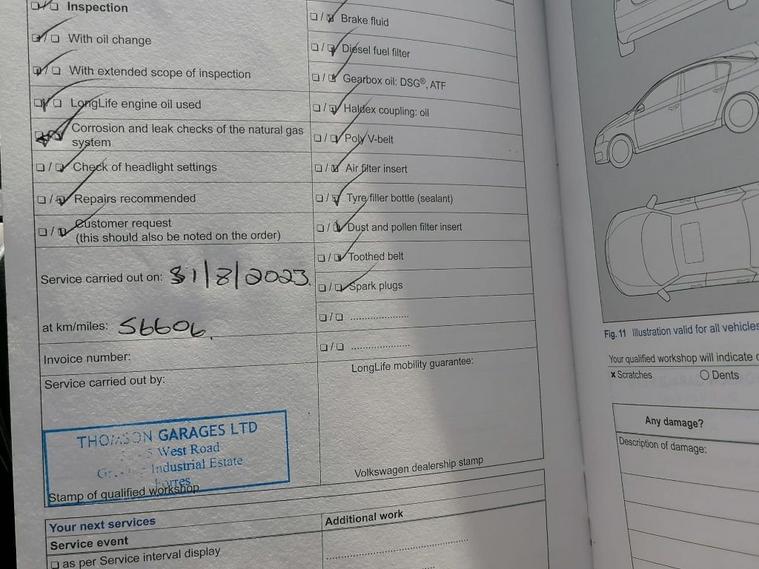 Inspection
With oil change
With extended scope of inspection
LongLife engine oil used
Corrosion and leak checks of the natural gas
system
Check of headlight settings
Repairs recommended
Customer request
(this should also be noted on the order)
Service carried out on: 31/8/2023.
at km/miles: 56606.
Invoice number:
Service carried out by:
THOMSON GARAGES LTD
West Road
Industrial Estate
Forres
Stamp of qualified workshop
Your next services
Service event
as per Service interval display
Brake fluid
Diesel fuel filter
Gearbox oil: DSG®, ATF
Haldex coupling: oil
Poly V-belt
Air filter insert
Tyre filler bottle (sealant)
Dust and pollen filter insert
Toothed belt
Spark plugs
LongLife mobility guarantee:
Volkswagen dealership stamp
Additional work
Fig. 11 Illustration valid for all vehicles
Your qualified workshop will indicate
x Scratches O Dents
Any damage?
Description of damage: